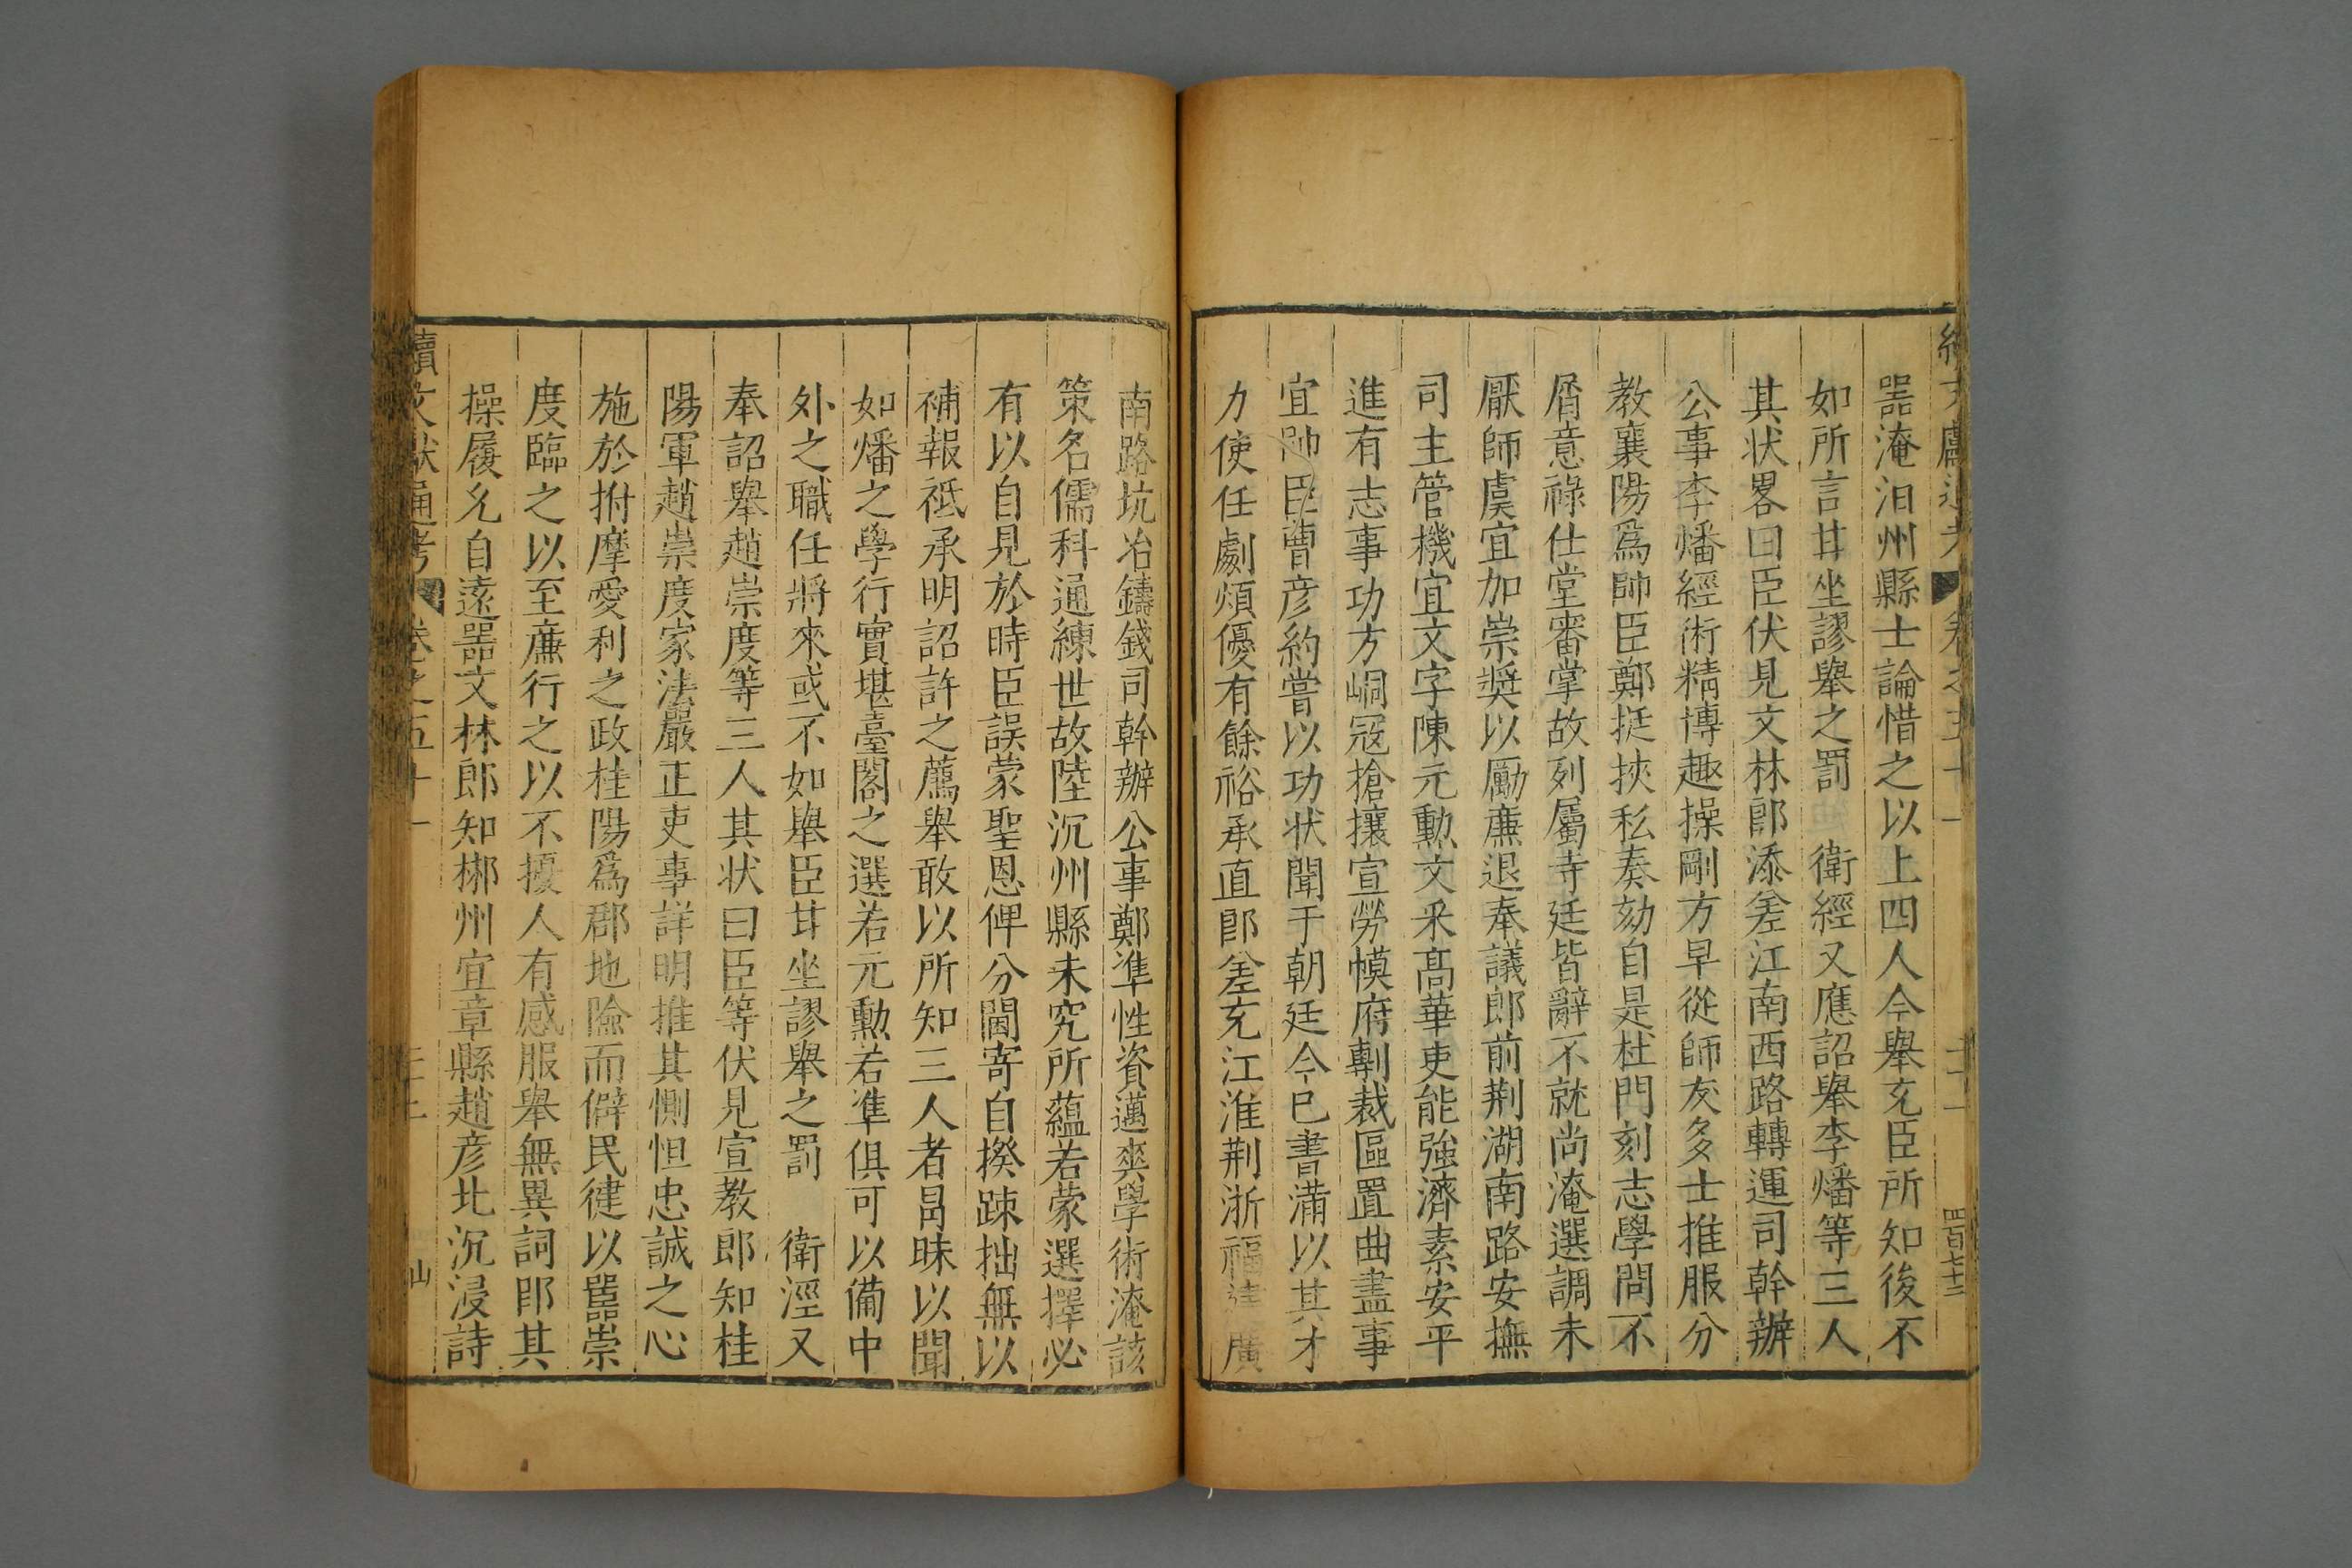 噐淹汨州縣士論惜之以上四人今舉充臣所知後不
如所言甘坐謬舉之罰　衛經又應詔舉李燔等三人
其状畧曰臣伏見文林郎添差江南西路轉運司幹辦
公事李燔經術精博趣操剛方早從師友多士推服分
教襄陽爲帥臣鄭挺挾私奏劾自是杜門刻志學問不
屑意祿仕堂審掌故列屬寺廷皆辭不就尚淹選調未
厭師虞宜加崇奬以勵廉退奉議郎前荆湖南路安撫
司主管機宜文字陳元勳文采髙華吏能強濟素安平
進有志事功方峒冦搶攘宣勞幙府剸裁區置曲盡事
宜帥臣曹彦約嘗以功状聞于朝廷今已書滿以其才
力使任劇煩優有餘裕承直郎差充江淮荆浙福建廣
南路坑冶鑄錢司幹辦公事鄭準性資邁爽學術淹該
策名儒科通練世故陸沉州縣未究所蘊若蒙選擇必
有以自見於時臣誤蒙聖恩俾分閫寄自揆踈拙無以
補報祗承明詔許之薦舉敢以所知三人者冐昧以聞
如燔之學行實堪臺閣之選若元勳若準俱可以備中
外之職任將來或不如舉臣甘坐謬舉之罰　衛涇又
奉詔舉趙崇度等三人其状曰臣等伏見宣教郎知桂
陽軍趙崇度家法嚴正吏事詳明推其惻怛忠誠之心
施於拊摩愛利之政桂陽爲郡地險而僻民徤以嚚崇
度臨之以至廉行之以不擾人有感服舉無異詞即其
操履允自遠噐文林郎知郴州宜章縣趙彦北沉浸詩
續文獻通考　卷之五十一　　山